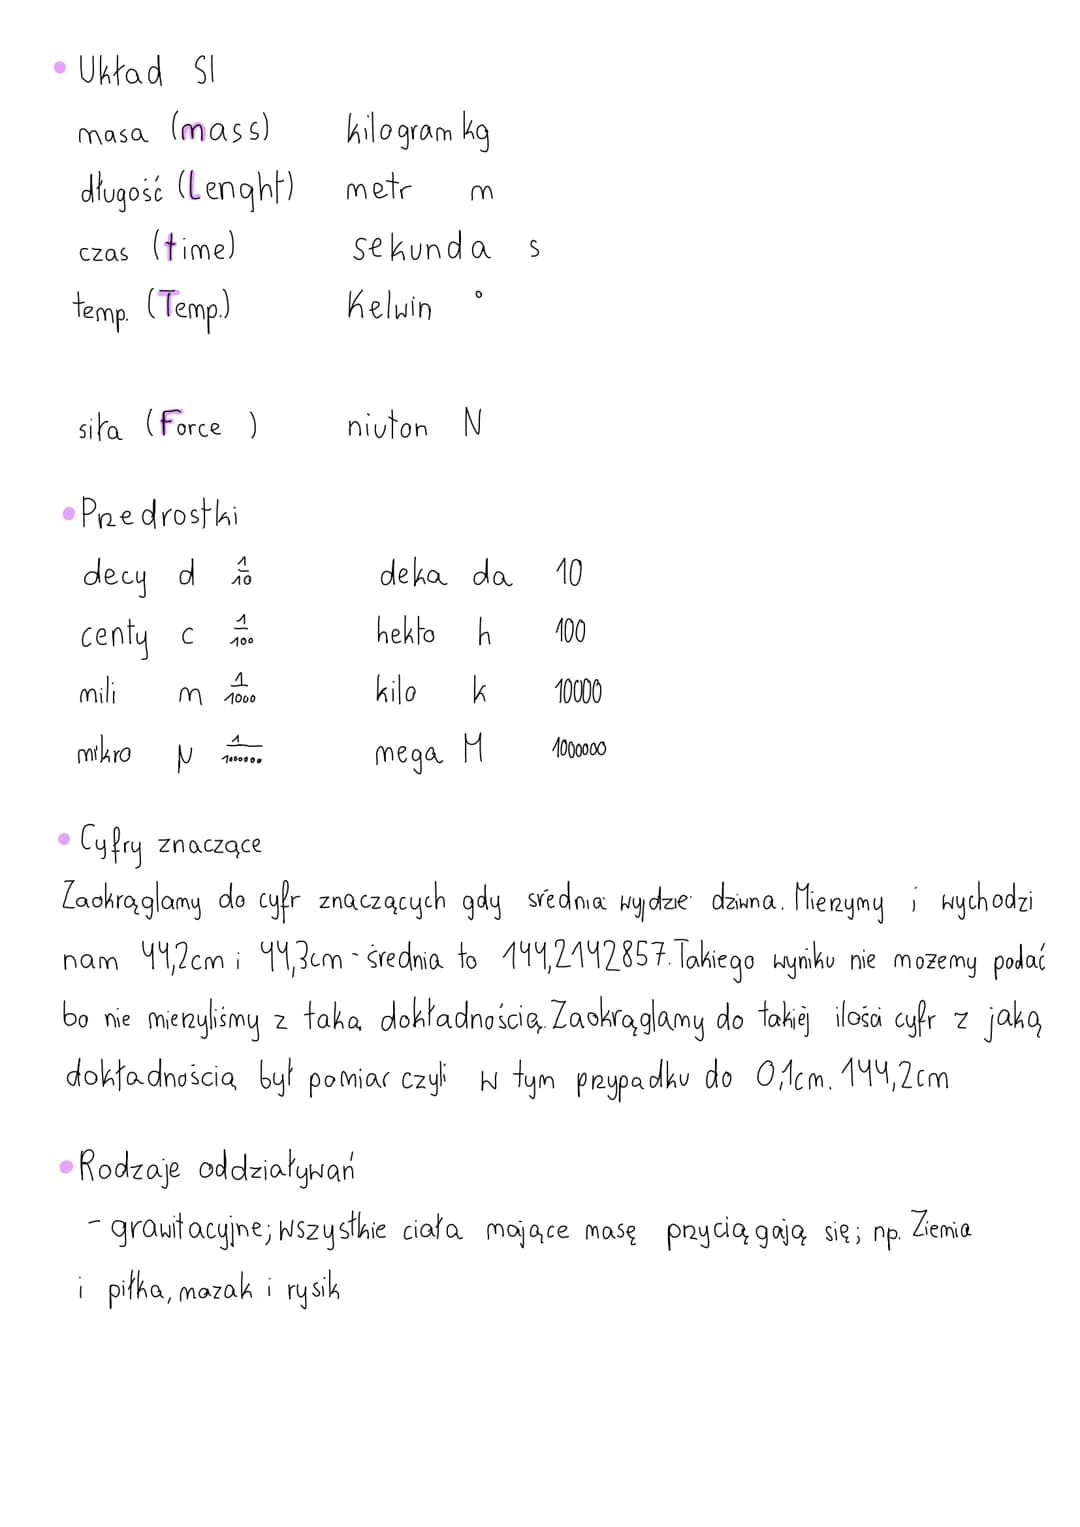 • Układ SI
masa (mass) kilogram kg
długość (Lenght) metr m
czas (time) sekunda s
temp. (Temp.) Kelwin °
siła (Force ) niuton N
• Przedrostki
decy d 1/10 deka da 10
centy c 1/100 hekto h 100
mili m 1/1000 kilo k 10000
mikro µ 1/1000000 mega M 1000000
• Cyfry znaczące
Zaokrąglamy do cyfr znaczących gdy średnia wyjdzie dziwna. Mierzymy i wychodzi
nam 44,2cm i 44,3cm - średnia to 144,2142857. Takiego wyniku nie możemy podać
bo nie mierzyliśmy z taką dokładnością. Zaokrąglamy do takiej ilości cyfr z jaką
dokładnością był pomiar czyli w tym przypadku do 0,1cm. 144,2cm
• Rodzaje oddziaływań
- grawitacyjne; wszystkie ciała mające masę przyciągają się; np. Ziemia
i piłka, mazak i rysik